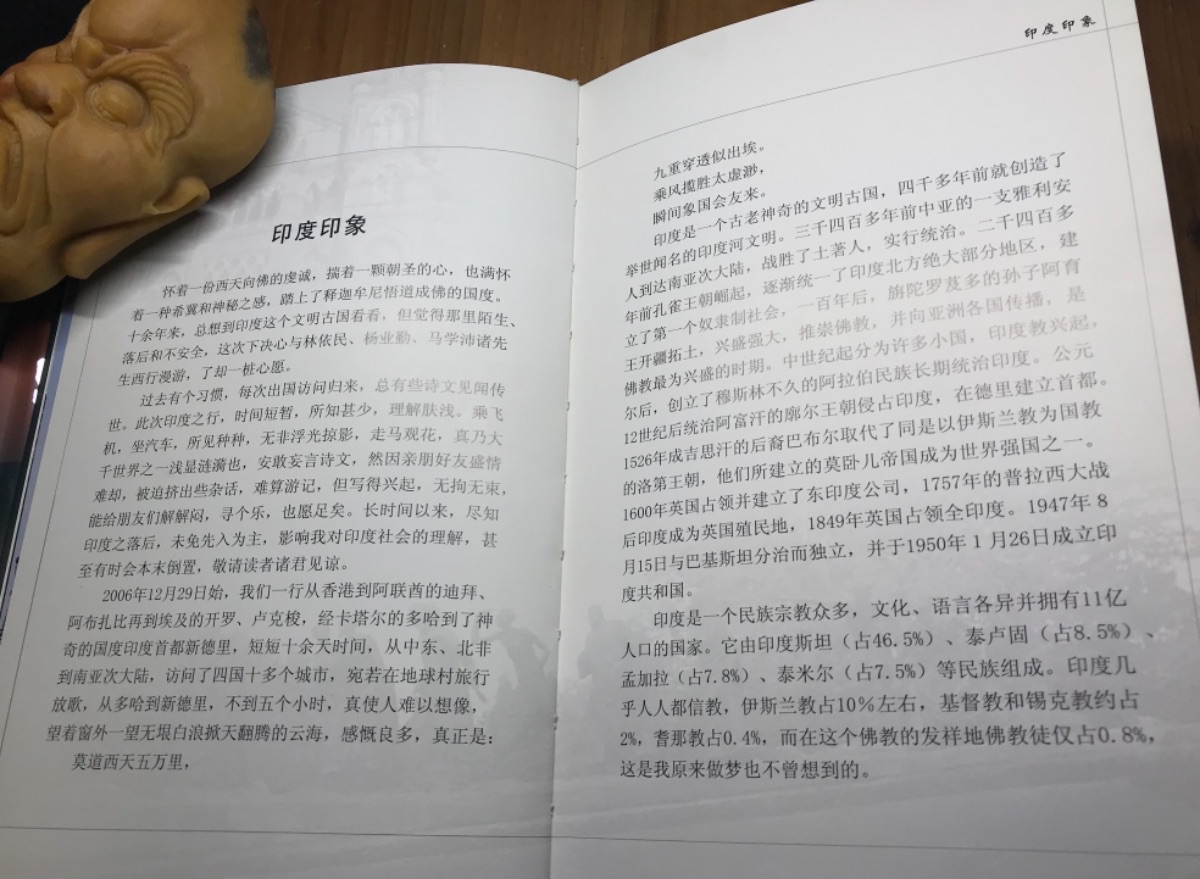 印度印象
怀着一份西天向佛的虔诚，揣着一颗朝圣的心，也满怀
着一种希冀和神秘之感，踏上了释迦牟尼悟道成佛的国度。
十余年来，总想到印度这个文明古国看看，但觉得那里陌生、
落后和不安全，这次下决心与林依民、杨业勤、马学沛诸先
生西行漫游，了却一桩心愿。
过去有个习惯，每次出国访问归来，总有些诗文见闻传
世。此次印度之行，时间短暂，所知甚少，理解肤浅。乘飞
机，坐汽车，所见种种，无非浮光掠影，走马观花，真乃大
千世界之一浅显涟漪也，安敢妄言诗文，然因亲朋好友盛情
难却，被迫挤出些杂话，难算游记，但写得兴起，无拘无束，
能给朋友们解解闷，寻个乐，也愿足矣。长时间以来，尽知
印度之落后，未免先入为主，影响我对印度社会的理解，甚
至有时会本末倒置，敬请读者诸君见谅。
2006年12月29日始，我们一行从香港到阿联酋的迪拜、
阿布扎比再到埃及的开罗、卢克梭，经卡塔尔的多哈到了神
奇的国度印度首都新德里，短短十余天时间，从中东、北非
到南亚次大陆，访问了四国十多个城市，宛若在地球村旅行
放歌，从多哈到新德里，不到五个小时，真使人难以想像，
望着窗外一望无垠白浪掀天翻腾的云海，感慨良多，真正是：
莫道西天五万里，
印度印象
九重穿透似出埃。
乘风揽胜太虚渺，
瞬间象国会友来。
印度是一个古老神奇的文明古国，四千多年前就创造了
举世闻名的印度河文明。三千四百多年前中亚的一支雅利安
人到达南亚次大陆，战胜了土著人，实行统治。二千四百多
年前孔雀王朝崛起，逐渐统一了印度北方绝大部分地区，建
立了第一个奴隶制社会，一百年后，旃陀罗芨多的孙子阿育
王开疆拓土，兴盛强大，推崇佛教，并向亚洲各国传播，是
佛教最为兴盛的时期。中世纪起分为许多小国，印度教兴起，
尔后，创立了穆斯林不久的阿拉伯民族长期统治印度。公元
12世纪后统治阿富汗的廓尔王朝侵占印度，在德里建立首都。
1526年成吉思汗的后裔巴布尔取代了同是以伊斯兰教为国教
的洛第王朝，他们所建立的莫卧儿帝国成为世界强国之一。
1600年英国占领并建立了东印度公司，1757年的普拉西大战
后印度成为英国殖民地，1849年英国占领全印度。1947年8
月15日与巴基斯坦分治而独立，并于1950年1月26日成立印
度共和国。
印度是一个民族宗教众多，文化、语言各异并拥有11亿
人口的国家。它由印度斯坦（占46.5%）、泰卢固（占8.5%）、
孟加拉（占7.8%）、泰米尔（占7.5%）等民族组成。印度几
乎人人都信教，伊斯兰教占10%左右，基督教和锡克教约占
2%，耆那教占0.4%，而在这个佛教的发祥地佛教徒仅占0.8%，
这是我原来做梦也不曾想到的。